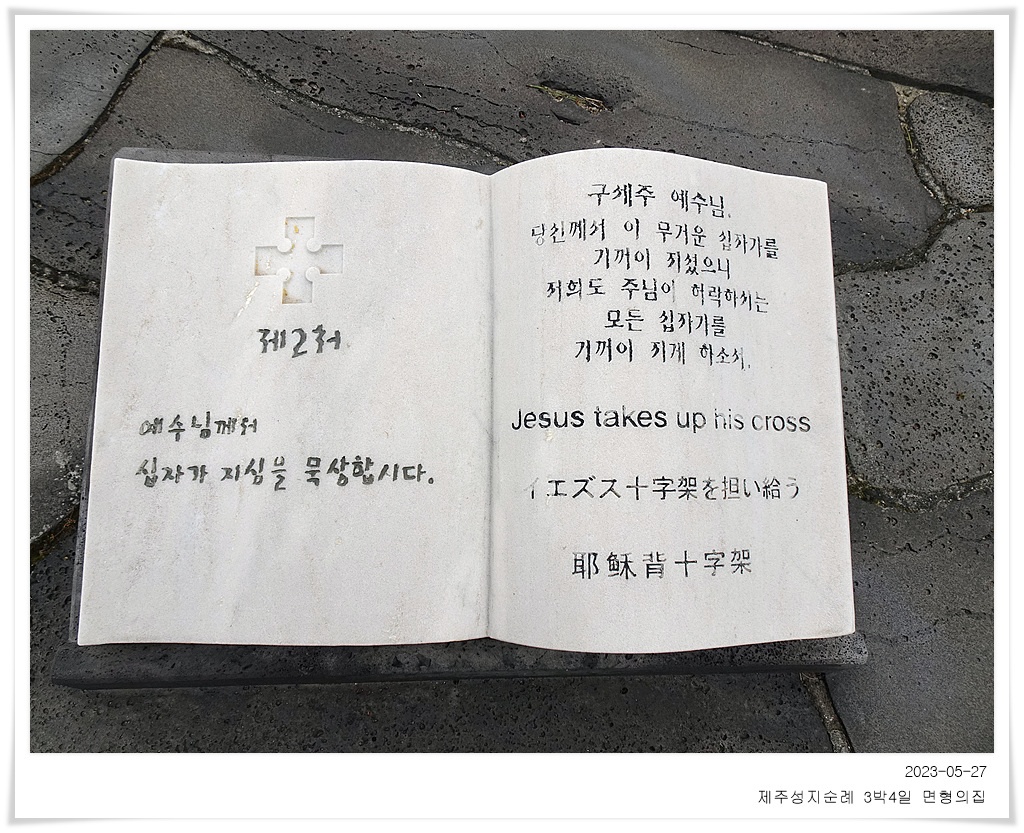 제2처
예수님께서
십자가 지심을 묵상합시다.
구세주 예수님.
당신께서 이 무거운 십자가를
기꺼이 지셨으니
저희도 주님이 허락하시는
모든 십자가를
기꺼이 지게 하소서.
Jesus takes up his cross
イエズス十字架を担い給う
耶稣背十字架
2023-05-27
제주성지순례 3박4일 면형의집